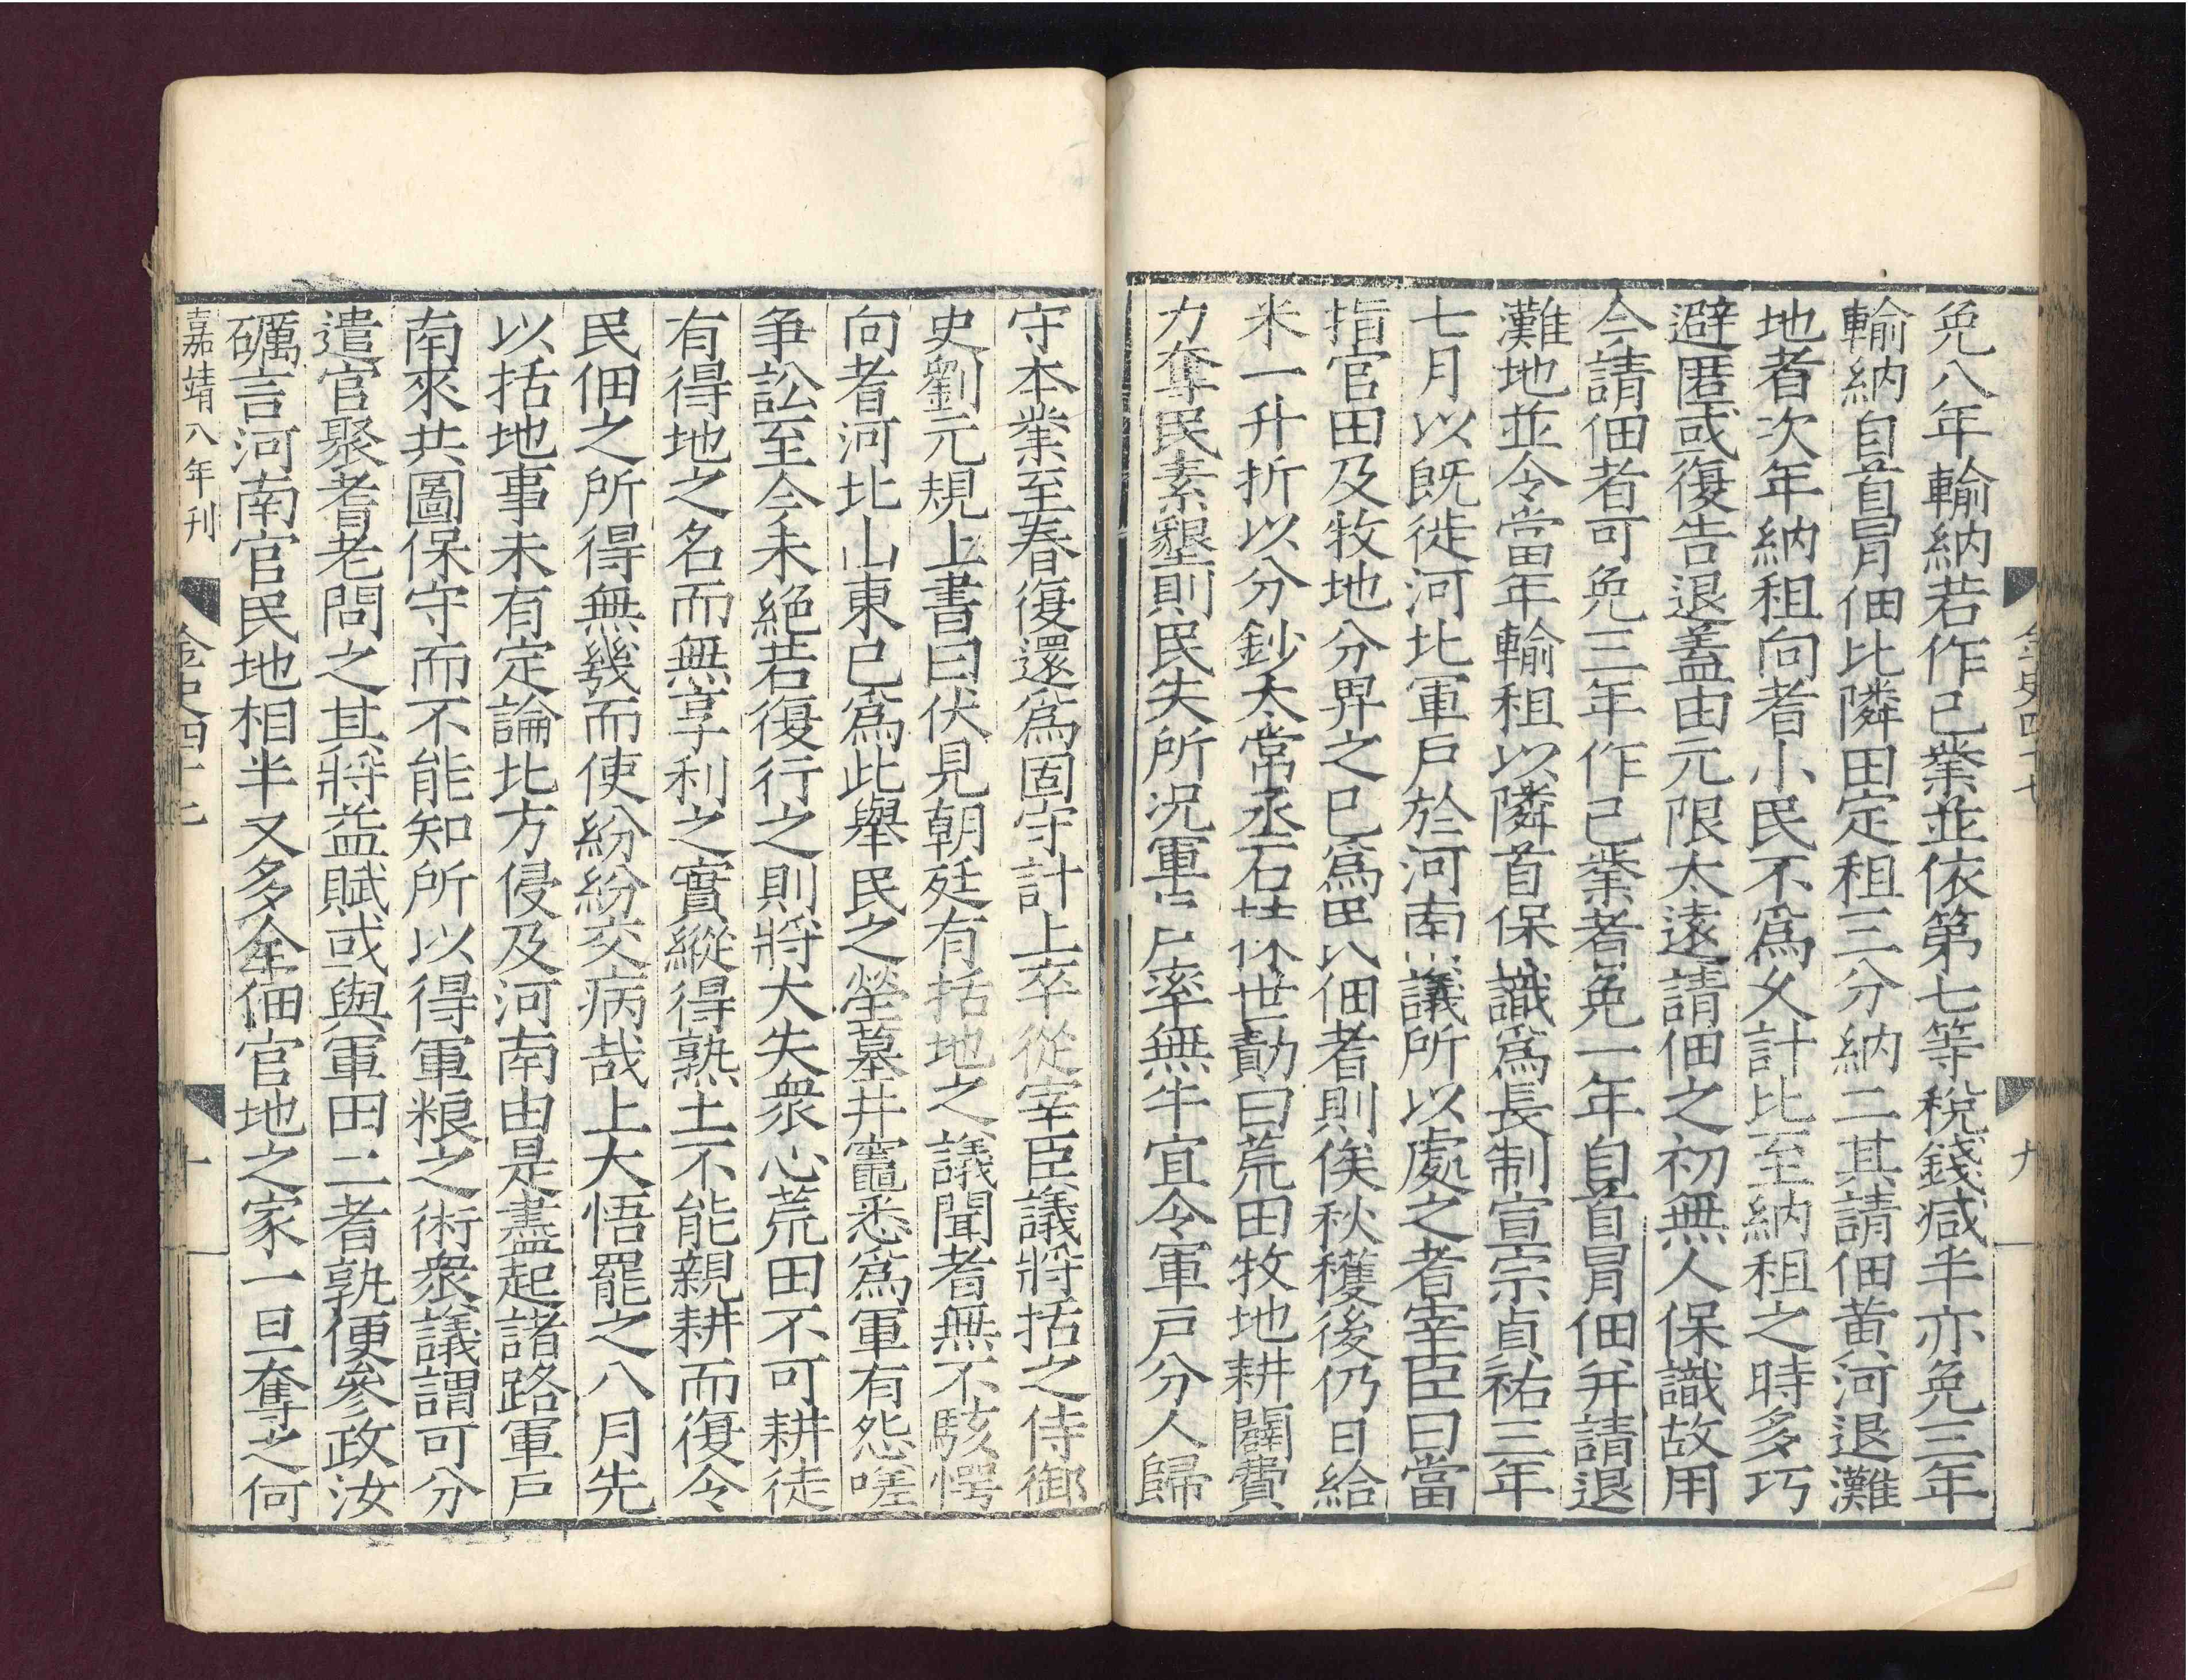 免八年輸納若作己業並依第七等稅錢減半亦免三年
輸納自首冒佃比隣田定租三分納二其請佃黄河退灘
地者次年納租向者小民不爲久計比至納租之時多巧
避匿或復告退蓋由元限太遠請佃之初無人保識故用
今請佃者可免三年作己業者免一年自首冒佃并請退
灘地並令當年輸租以隣首保識爲長制宣宗貞祐三年
七月以既徙河北軍戶於河南議所以處之者宰臣曰當
指官田及牧地分畀之已爲民佃者則俟秋穫後仍日給
米一升折以分鈔太常丞石世勣曰荒田牧地耕闢費
力奪民素墾則民失所况軍戶率無牛宜令軍戶分人歸
守本業至春復還爲固守計上卒從宰臣議將括之侍御
史劉元規上書曰伏見朝廷有括地之議聞者無不駭愕
向者河北山東已爲此舉民之塋墓井竈悉爲軍有怨嗟
爭訟至今未絶若復行之則將大失衆心荒田不可耕徒
有得地之名而無享利之實縱得熟土不能親耕而復令
民佃之所得無幾而使紛紛交病哉上大悟罷之八月先
以括地事未有定論北方侵及河南由是盡起諸路軍戶
南來共圖保守而不能知所以得軍粮之術衆議謂可分
遣官聚耆老問之其將益賦或與軍田二者孰便參政汝
礪言河南官民地相半又多全佃官地之家一旦奪之何
嘉靖八年刊
金史四十七
十
金史四十七
九